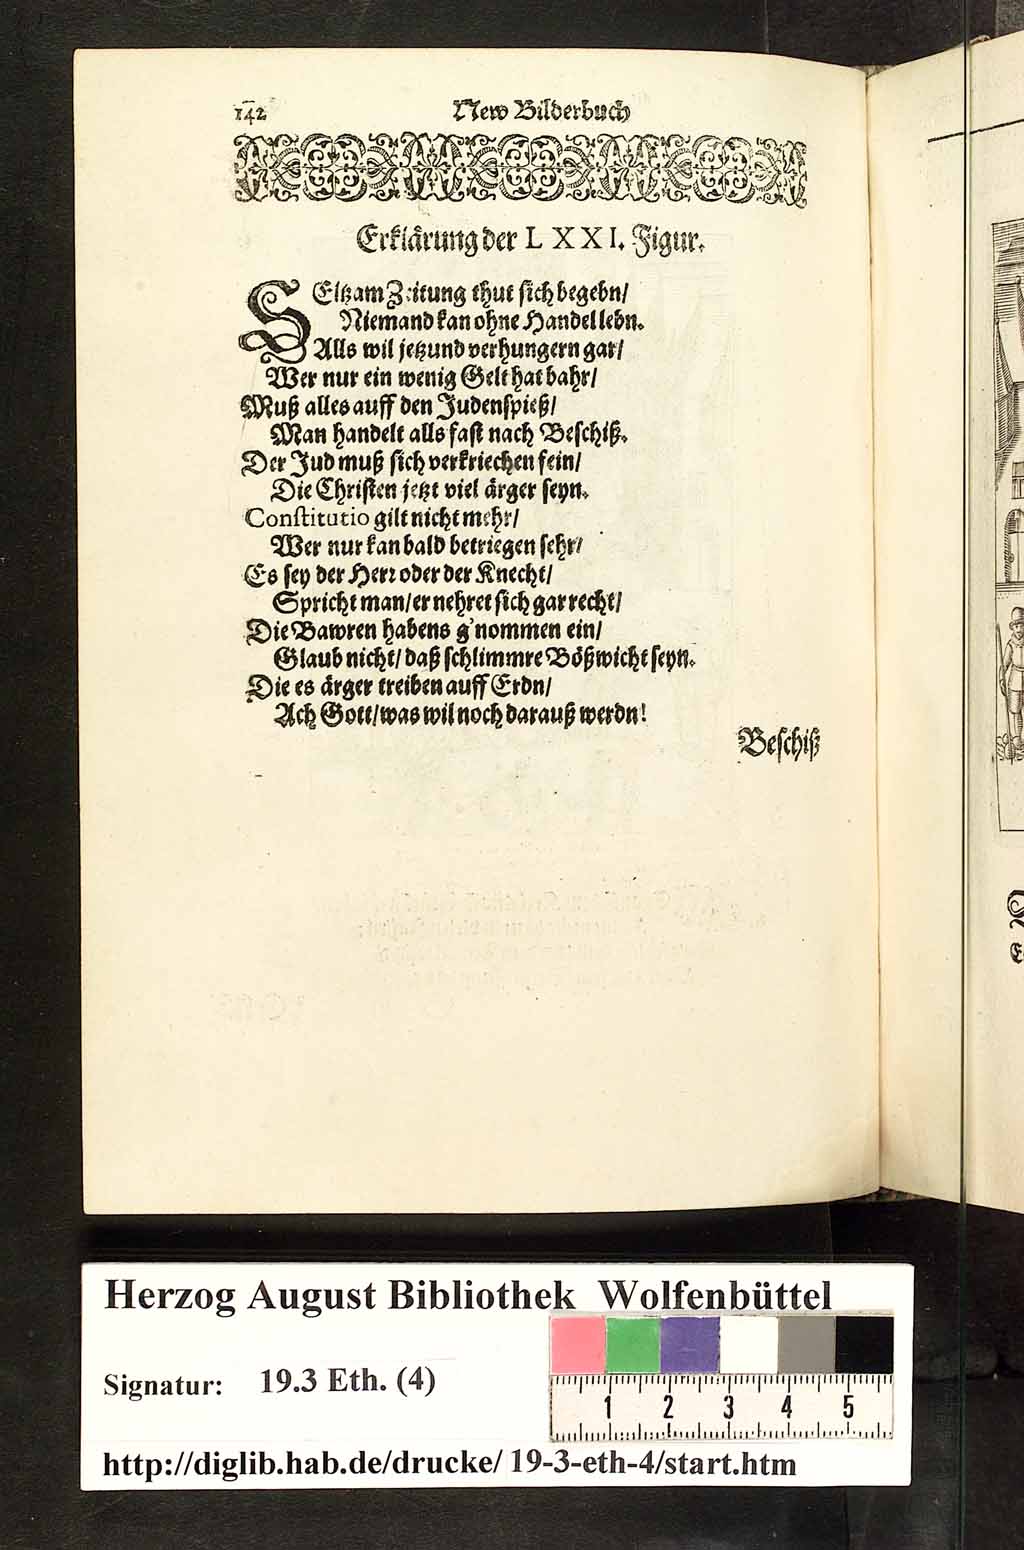 142 New Bilderbuch
Erklärung der LXXI. Figur.
SEltzam Zeitung thut sich begebn/
Niemand kan ohne Handel lebn.
Alls wil jetzund verhungern gar/
Wer nur ein wenig Gelt hat bahr/
Muß alles auff den Judenspieß/
Man handelt alls fast nach Beschiß.
Der Jud muß sich verkriechen fein/
Die Christen jetzt viel ärger seyn.
Constitutio gilt nicht mehr/
Wer nur kan bald betriegen sehr/
Es sey der Herr oder der Knecht/
Spricht man/ er nehret sich gar recht/
Die Bawren habens g'nommen ein/
Glaub nicht/ daß schlimmre Bößwicht seyn.
Die es ärger treiben auff Erdn/
Ach Gott/ was wil noch darauß werdn!
Beschiß
Herzog August Bibliothek Wolfenbüttel
Signatur: 19.3 Eth. (4)
1 2 3 4 5
http://diglib.hab.de/drucke/19-3-eth-4/start.htm